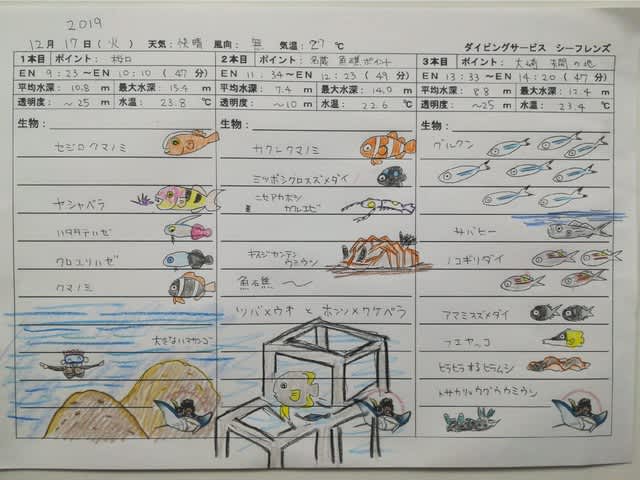 2019
12月 17日 (火) 天気: 快晴 風向: 無 気温: 27 ℃
ダイビングサービス シーフレンズ
1本目 ポイント:
EN 9:23 ~ EN 10:10 (47 分)
平均水深: 10.8 m 最大水深: 15.4 m
透明度: ~25 m 水温: 23.8 ℃
生物:
セジロクマノミ
ヤシャベラ
ハタタテハゼ
クロユリハゼ
クマノミ
大きなハマサンゴ
2本目 ポイント: 名蔵 魚礁ポイント
EN 11:34 ~ EN 12:23 (49 分)
平均水深: 7.4 m 最大水深: 14.0 m
透明度: ~10 m 水温: 22.6 ℃
生物:
カクレクマノミ
ミツボシクロスズメダイ
ニセアカホシ
カクレエビ
キスジカンテン
ウミウシ
魚礁 〜
ツバメウオ と ホンソメワケベラ
3本目 ポイント: 大崎 の池
EN 13:33 ~ EN 14:20 (47 分)
平均水深: 8.8 m 最大水深: 12.4 m
透明度: ~25 m 水温: 23.4 ℃
生物:
グルクン
サバヒー
ノコギリダイ
アマミスズメダイ
フエヤッコ
ヒラヒラするヒラムシ
トサカリュウグウウミウシ